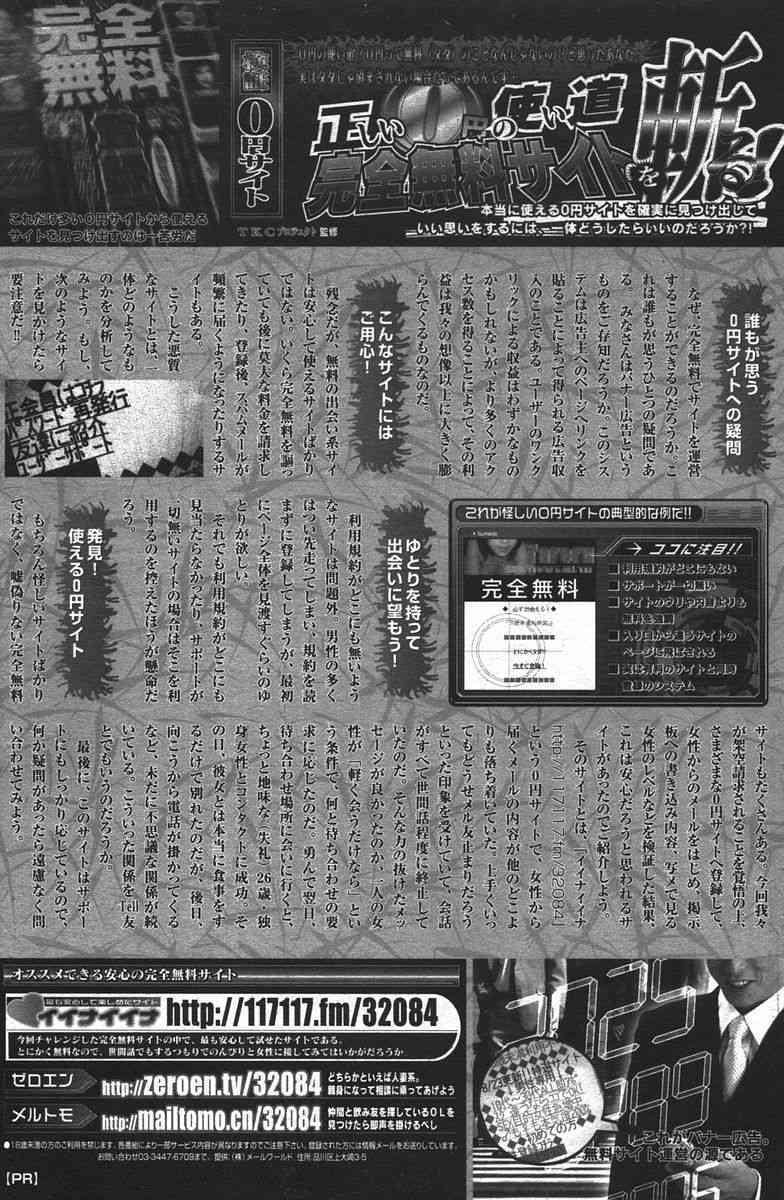 完全
無料
これだけ多い0円サイトから使える
サイトを見つけ出すのは一苦労だ
0円サイト
TKCプロジェクト 監修
正しい0円の使い道
完全無料サイトを斬る!
本当に使える0円サイトを確実に見つけ出して
いい思いをするには、一体どうしたらいいのだろうか?!
誰もが思う
0円サイトへの疑問
なぜ、完全無料でサイトを運営
することができるのだろうか。こ
れは誰もが思うひとつの疑問であ
る。みなさんはバナー広告という
ものをご存知だろうか。このシス
テムは広告主へのページへリンクを
貼ることによって得られる広告収
入のことである。ユーザーのワンク
リックによる収益はわずかなもの
かもしれないが、より多くのアク
セス数を得ることによって、その利
益は我々の想像以上に大きく膨
らんでくるものなのだ。
こんなサイトには
ご用心!
残念だが、無料の出会い系サイ
トは安心して使えるサイトばかり
ではない。いくら完全無料を謳っ
ていても後に莫大な料金を請求し
てきたり、登録後、スパムメールが
頻繁に届くようになったりするサ
イトもある。
こうした悪質
なサイトとは、一
体どのようなも
のかを分析して
みよう。もし、
次のようなサイ
トを見かけたら
要注意だ!!
正会員はコチラ
パスワード再発行
友達に紹介
ユーザーサポート
これが怪しい0円サイトの典型的な例だ!!
完全無料
ココに注目!!
■利用規約がどこにもない
■サポートが一切無い
■サイトのウリや内容よりも
無料を強調
■入り口から違うサイトの
ページに飛ばされる
■実は有料のサイトと同時
登録のシステム
ゆとりを持って
出会いに望もう!
利用規約がどこにも無いよう
なサイトは問題外。男性の多く
はつい先走ってしまい、規約を読
まずに登録してしまうが、最初
にページ全体を見渡すくらいのゆ
とりが欲しい。
それでも利用規約がどこにも
見当たらなかったり、サポートが
一切無いサイトの場合はそこを利
用するのを控えたほうが懸命だ
ろう。
発見!
使える0円サイト
もちろん怪しいサイトばかり
ではなく、嘘偽りない完全無料
サイトもたくさんある。今回我々
が架空請求されることを覚悟の上、
さまざまな0円サイトへ登録して、
女性からのメールをはじめ、掲示
板への書き込み内容、写メで見る
女性のレベルなどを検証した結果、
これは安心だろうと思われるサ
イトがあったのでご紹介しよう。
そのサイトとは、「イイナイイナ
http://117117.fm/32084」
という0円サイトで、女性から
届くメールの内容が他のどこよ
りも落ち着いていた。上手くいっ
てもどうせメル友止まりだろう
といった印象を受けていて、会話
がすべて世間話程度に終止して
いたのだ。そんな力の抜けたメッ
セージが良かったのか、一人の女
性が「軽く会うだけなら」とい
う条件で、何と待ち合わせの要
求に応じたのだ。勇んで翌日、
待ち合わせ場所に会いに行くと、
ちょっと地味な(失礼)26歳、独
身女性とコンタクトに成功。そ
の日、彼女とは本当に食事をす
るだけで別れたのだが、後日、
向こうから電話が掛かってくる
など、未だに不思議な関係が続
いている。こういった関係をTell友
とでもいうのだろうか。
最後に、このサイトはサポー
トにもしっかり応じているので、
何か疑問があったら遠慮なく問
い合わせてみよう。
オススメできる安心の完全無料サイト
最も安心して楽しめたサイト
イイナイイナ http://117117.fm/32084
今回チャレンジした完全無料サイトの中で、最も安心して試せたサイトである。
とにかく無料なので、世間話でもするつもりでのんびりと女性に接してみてはいかがだろうか
ゼロエン http://zeroen.tv/32084 どちらかといえば人妻系。
親身になって相談に乗ってあげよう
メルトモ http://mailtomo.cn/32084 仲間と飲み友を探しているOLを
見つけたら即声を掛けるべし
●18歳未満の方のご利用を禁じます。各番組により一部サービス内容が異なりますのでご注意下さい。登録された方には情報メールをお送りしています。
お問い合わせ03-3447-6709まで。提供:(株)メールワールド 住所:品川区上大崎3-5
【PR】
これがバナー広告。
無料サイト運営の源である